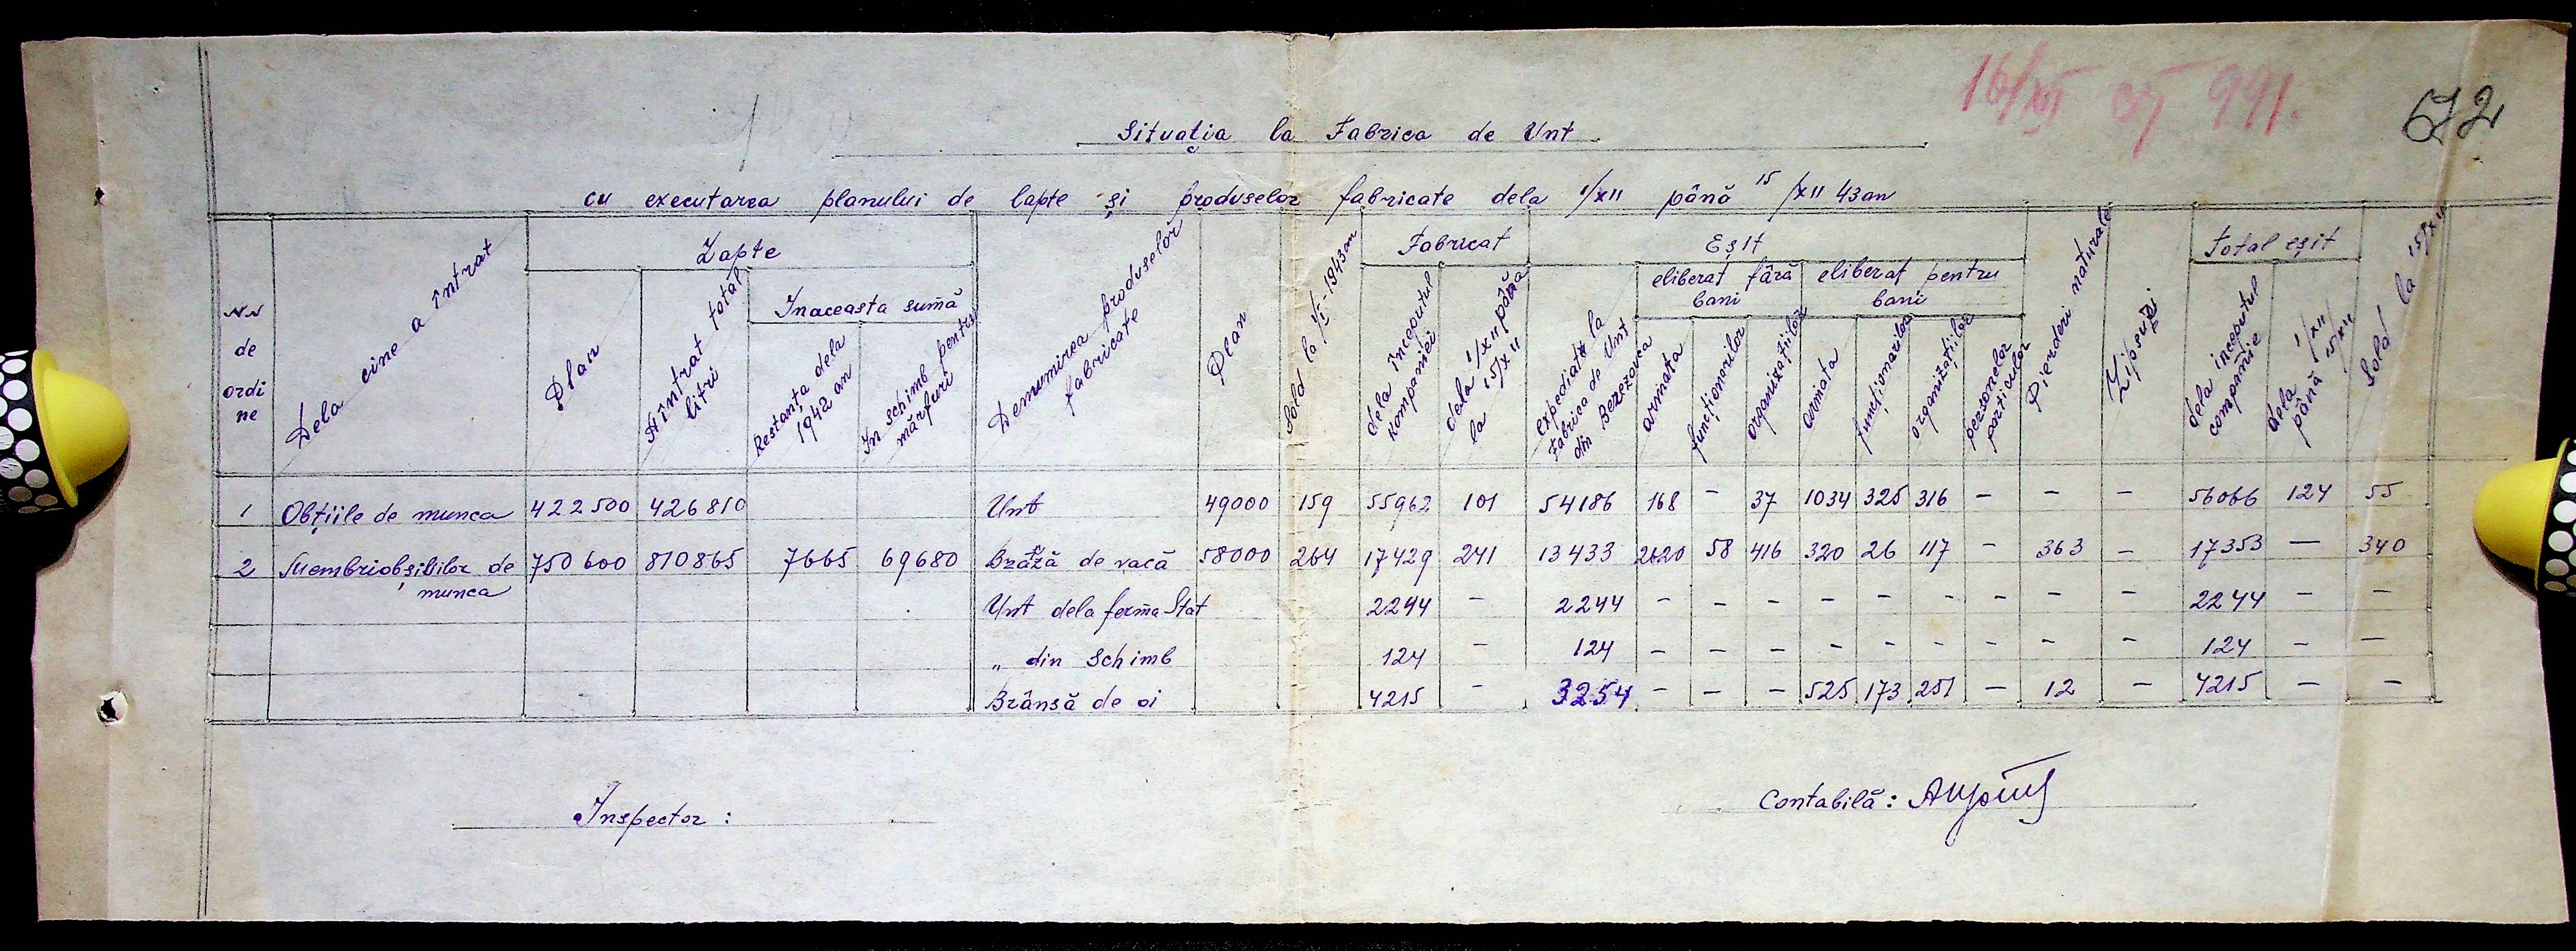 16/XII 991.
672
Situația la Fabrica de Unt
cu executarea planului de lapte și produselor fabricate dela 1/XII până 15/XII 43 an
NN de ordine
Dela cine a întrat
Lapte
Plan
A întrat total litri
Inaceasta sumă
Restanța dela 1942 an
In schimb pentru mărfuri
Denumirea produselor fabricate
Plan
Sold la 1/I-1943 an
Fabricat
dela începutul kompaniei
dela 1/XII până la 15/XII
Eșit
expediată la Fabrica de Unt din Berezovca
eliberat fără bani
armata
funționarilor
organizațiilor
eliberat pentru bani
armata
funționarilor
organizațiilor
personelor particulor
Pierderi naturale
Lipsuri
Total eșit
dela inceputul companie
dela 1/XII până 15/XII
Sold la 15/XII
1 Obțiile de munca 422500 426810 Unt 49000 159 55962 101 54186 168 - 37 1034 325 316 - - - 56066 124 55
2 Membriobșiilor de munca 750600 810865 7665 69680 Brâză de vacă 58000 264 17429 241 13433 2620 58 416 320 26 117 - 363 - 17353 - 340
Unt dela ferma Stat 2244 - 2244 - - - - - - - - - 2244 - -
„ din Schimb 124 - 124 - - - - - - - - - 124 - -
Brânsă de oi 4215 - 3254 - - - 525 173 251 - 12 - 4215 - -
Inspector :
Contabilă :